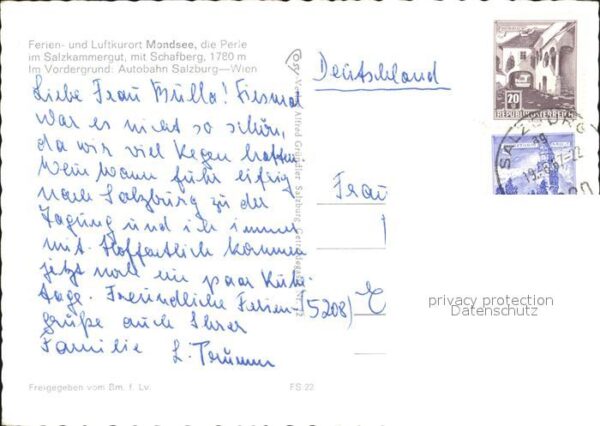 Ferien- und Luftkurort Mondsee, die Perle
im Salzkammergut, mit Schafberg, 1780 m
Im Vordergrund: Autobahn Salzburg—Wien
Liebe Frau Bulla! Diesmal
war es nicht so schön,
da wir viel Regen hatten.
Mein Mann fuhr eifrig
nach Salzburg zu der
Tagung und ich immer
mit. Hoffentlich kommen
jetzt noch ein paar
tage. Freundliche Ferien-
grüße auch Ihrer
Familie L.
Freigegeben vom Bm. f. Lv.
FS 22
Verlag Alfred Gründler, Salzburg
Deutschland
Frau
(5208)
20
REPUBLIK ÖSTERREICH
SALZBURG
privacy protection
Datenschutz